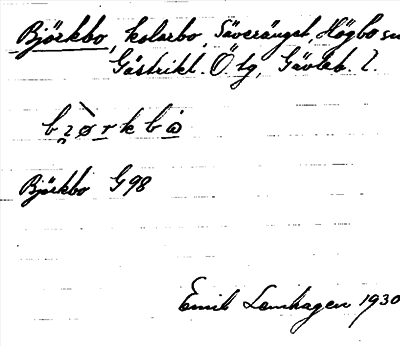 Björkbo, kolarbo, Säveränget, Högbo sn
Gästrikl. Ö tg, Gävleb. l.
Björkbo G 98
Emil Lenhagen 1930